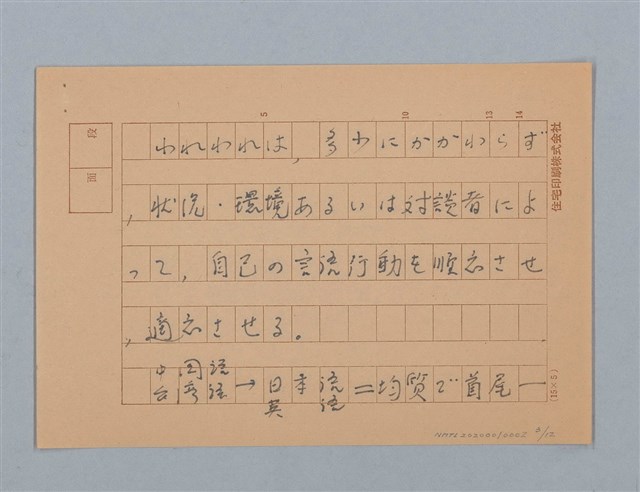 5 10 13 14
段
面
われわれは，多少にかかわらず
，状況・環境あるいは対談者によ
って，自己の言語行動を順応させ
，適応させる。
中国語
台湾語→日本語
英語＝均質で首尾一
住宅印刷株式会社
(15×5)
NMTL202000/0005 3/12